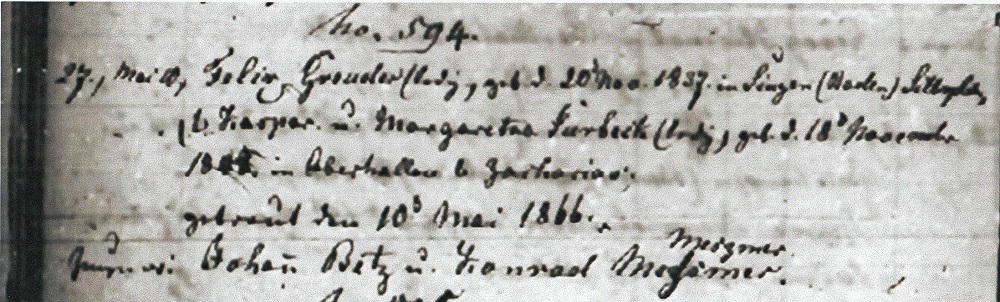 No. 594.
27., Mai 10, Felix Greuder (ledig, geb. d. 20t Nov. 1837. in Singen (Baden)
b. Kaspar. u. Margaretaa Furbeck (ledig, geb. d. 18t November
in Oberhallau b Zacharias;
getraut den 10t Mai 1866.
Mezmer.
Zeugen: Johan̄ Betz u. Konrad Messmer.